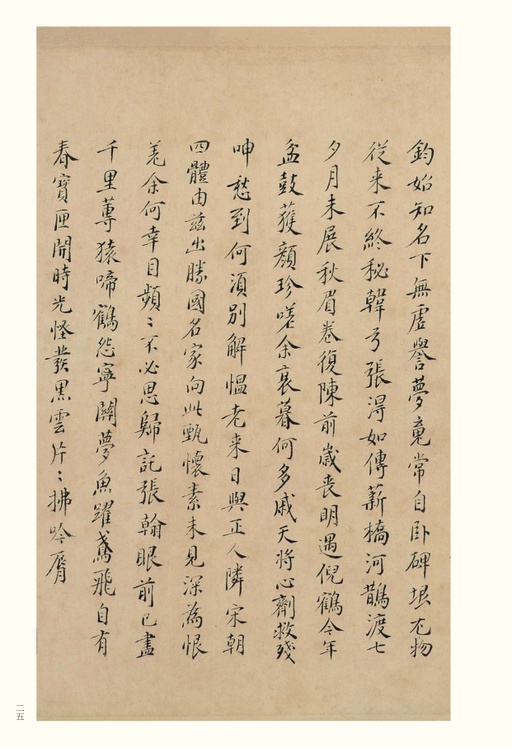 鈞始知名下無虛譽夢寬常自卧碑堪尤物
従来不終秘韓弓張淂如傳薪橋河鵲渡七
夕月未展秋眉卷復陳前歲丧明遇倪鶴今年
盆鼓獲顏珍嗟余衰暮何多戚天將心劑救殘
呻愁到何湏别解愠老来日與正人隣宋朝
四體由兹出勝國名家向此甄懷素未見深為恨
羌余何幸目頻〻不必思歸託張翰眼前已盡
千里蓴猿啼鶴怨寧關夢魚躍鳶飛自有
春寳匣開時光怪發黒雲片〻拂吟脣
二五